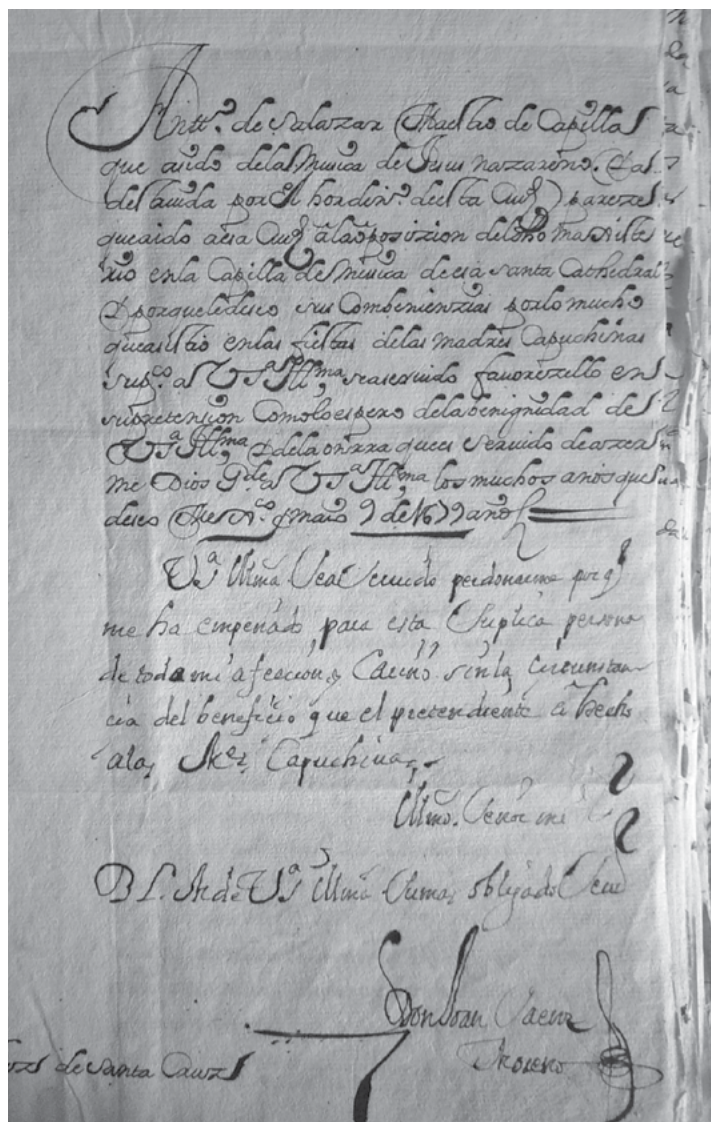 Antto. de Salazar Maestro de Capilla
que asido dela Musica de Jesus nazareno.
del ordino. desta Ciud) pareze
queaido aesa Ciud ala oposizion deldho Magiste
rio enla Capilla de Musica de esa Santa Cathedral
Y porque le deseo sus Combenienzias por lo mucho
queasistio en las fiestas de las madres Capuchinas
supco. a VSa Illma, seaseruido favorezello en
supretension Como lo espero dela benignidad de
VSa Illma, Y dela onrra que es seruido de azer
me Dios Gde a VSa Illma los muchos años que
deseo Mexco. y março 9 de 1679 años
VSa Illma Sea Seruido perdonarme porq
me ha empeñado para esta Suplica persona
de toda mi afeccion, y Cariño sin la circunstan
cia del beneficio que el pretendiente a hecho
alas Mes. Capuchinas
Illmo. Señor mi
B L. M de VSa Illma Su mas obligado Seru
Don Joan Saenz
Moreno
de Santa Cruz